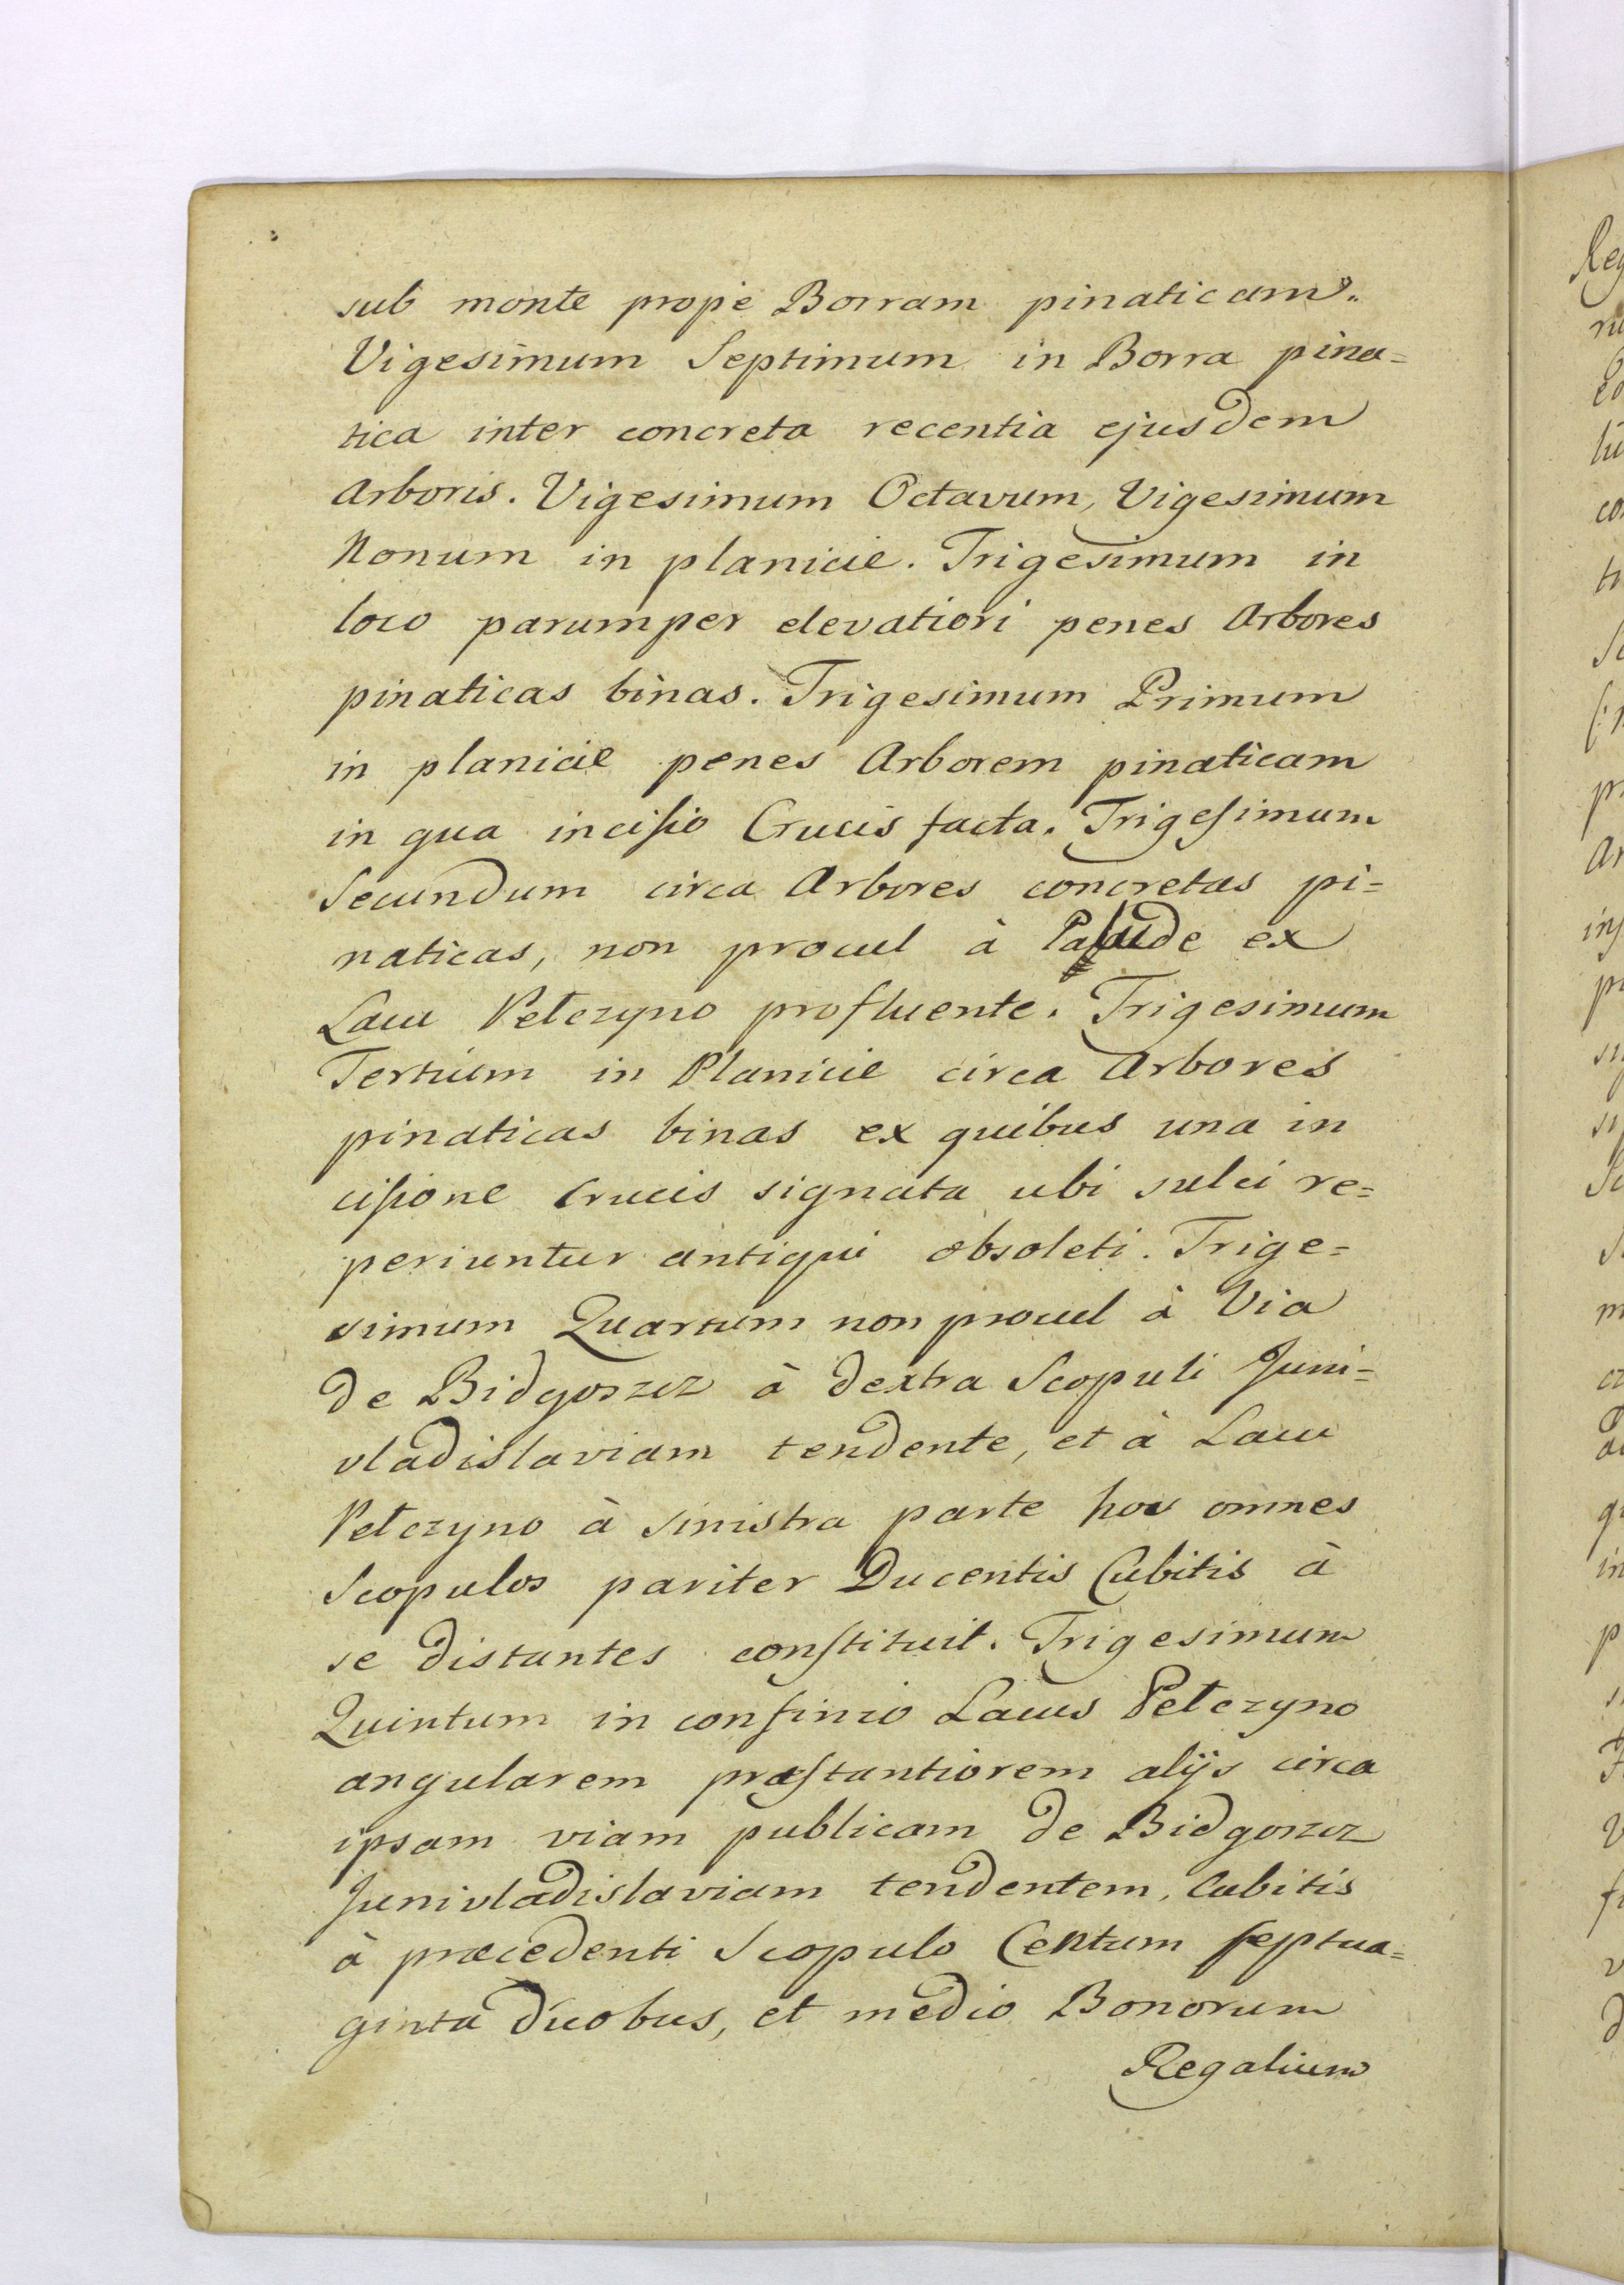 sub monte prope Borram pinaticam.
Vigesimum Septimum in Borra pina=
tica inter concreta recentia ejusdem
Arboris. Vigesimum Octavum, Vigesimum
Nonum in planicie. Trigesimum in
loco parumper elevatiori penes Arbores
pinaticas binas. Trigesimum Primum
in planicie penes Arborem pinaticam
in qua incisio Crucis facta. Trigesimum
Secundum circa Arbores concretas pi=
naticas, non procul à Palude ex
Lacu Pelczyno profluente. Trigesimum
Tertium in Planicie circa Arbores
pinaticas binas ex quibus una in
cisione Crucis signata ubi sulci re=
periuntur antiqui obsoleti. Trige=
simum Quartum non procul à Via
de Bidgoszcz à dextra Scopuli Juni=
vladislaviam tendente, et à Lacu
Pelczyno à sinistra parte hos omnes
Scopulos pariter Ducentis Cubitis à
se distantes constituit. Trigesimum
Quintum in confinio Lacus Pelczyno
angularem præstantiorem alijs circa
ipsam viam publicam de Bidgoszcz
Junivladislaviam tendentem, Cubitis
à præcedenti Scopulo Centum septua=
ginta duobus, et medio Bonorum
Regalium